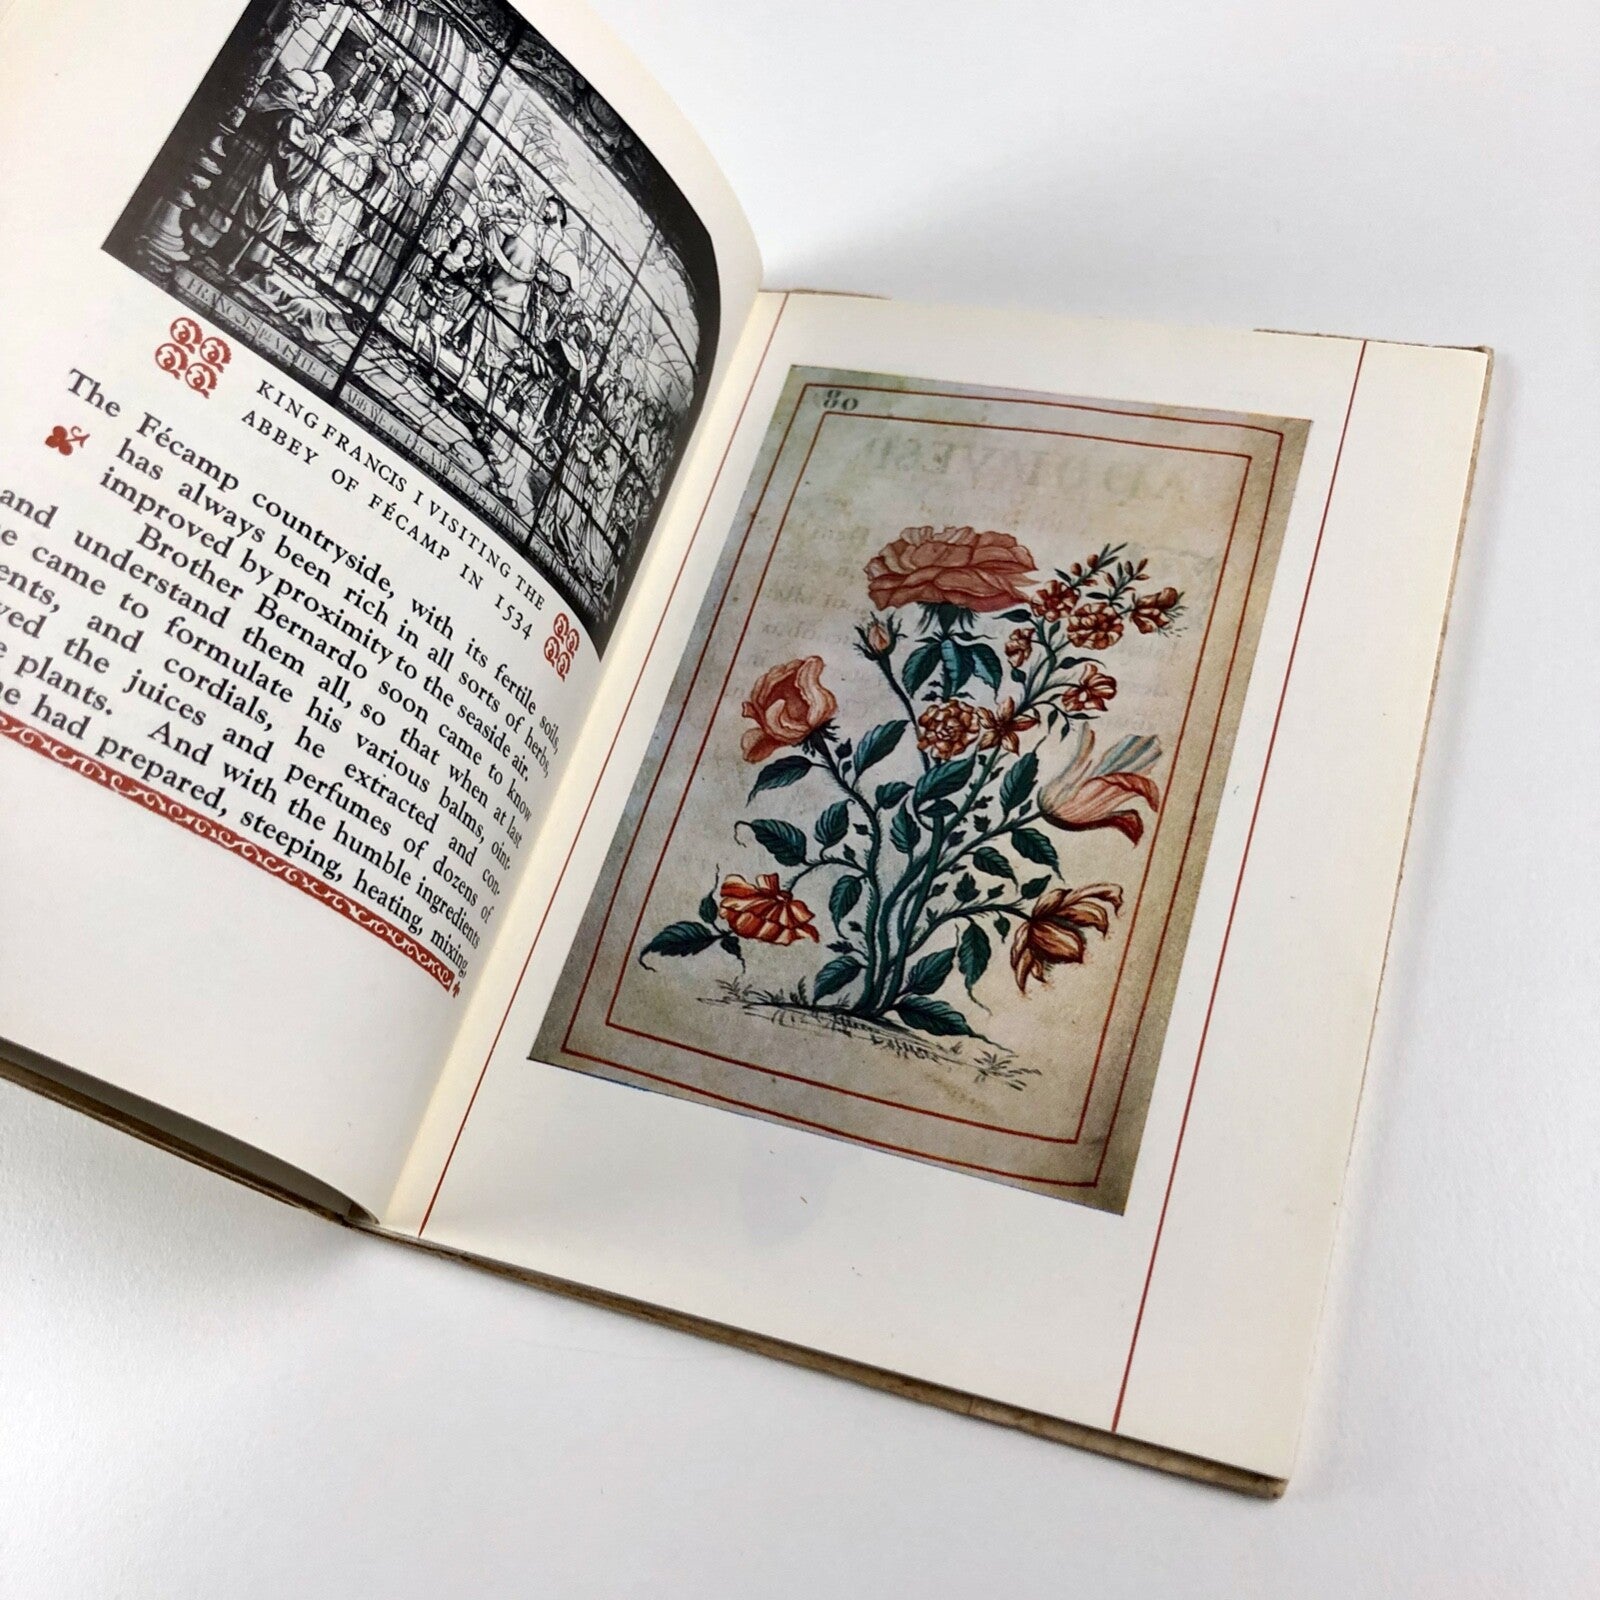 FRANCIS I
KING FRANCIS I VISITING THE
ABBEY OF FÉCAMP IN 1534
The Fécamp countryside, with its fertile soils,
has always been rich in all sorts of herbs,
improved by proximity to the seaside air.
Brother Bernardo soon came to know
and understand them all, so that when at last
came to formulate his various balms, oint-
ents, and cordials, he extracted and con-
the juices and perfumes of dozens of
plants. And with the humble ingredients
he had prepared, steeping, heating, mixing,
80